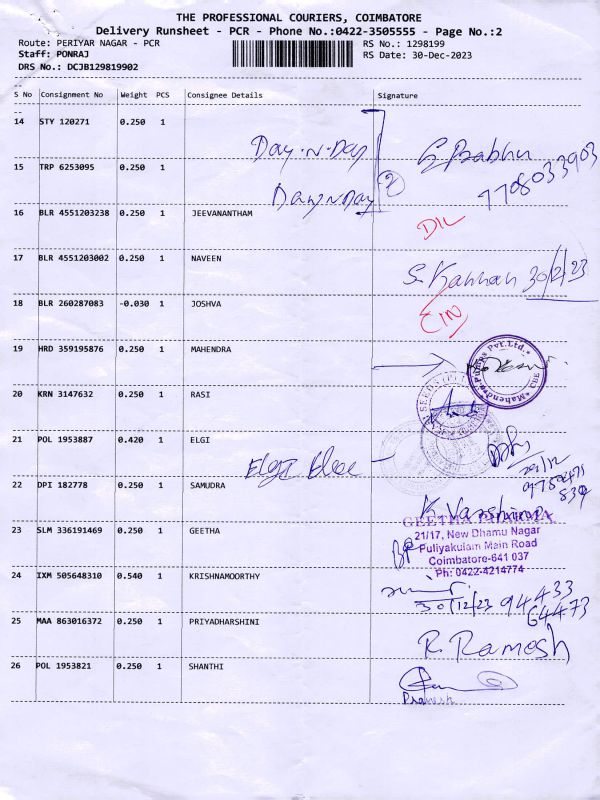 THE PROFESSIONAL COURIERS, COIMBATORE
Delivery Runsheet - PCR - Phone No.:0422-3505555 - Page No.:2
Route: PERIYAR NAGAR - PCR
RS No.: 1298199
Staff: PONRAJ
RS Date: 30-Dec-2023
DRS No.: DCJB129819902
S No Consignment No Weight PCS Consignee Details Signature
14 STY 120271 0.250 1
Day-N-Day
S. Prabhu
7708033903
15 TRP 6253095 0.250 1
Day-N-Day
2
16 BLR 4551203238 0.250 1 JEEVANANTHAM
DIL
17 BLR 4551203002 0.250 1 NAVEEN
S. Kannan 30/12/23
18 BLR 260287083 -0.030 1 JOSHVA
CIN
19 HRD 359195876 0.250 1 MAHENDRA
Mahendra Pumps Pvt.Ltd.
CBE
20 KRN 3147632 0.250 1 RASI
SEEDS
21 POL 1953887 0.420 1 ELGI
Elgi Elec
22 DPI 182778 0.250 1 SAMUDRA
K. Varshini
23 SLM 336191469 0.250 1 GEETHA
GEETHA PHARMA
21/17, New Dhamu Nagar
Puliyakulam Main Road
Coimbatore-641 037
Ph: 0422-4214774
24 IXM 505648310 0.540 1 KRISHNAMOORTHY
30/12/23 94433
64473
25 MAA 863016372 0.250 1 PRIYADHARSHINI
R. Ramesh
26 POL 1953821 0.250 1 SHANTHI
Pranesh